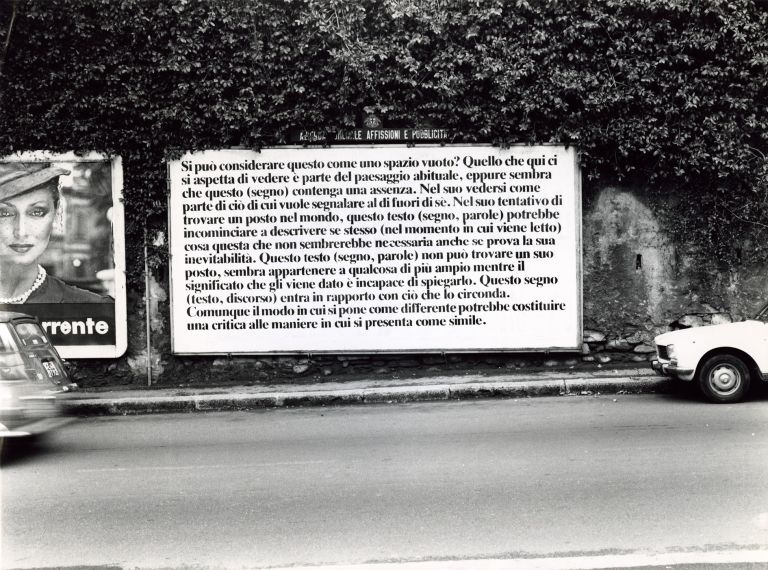 AFFISSIONI E PUBBLICITA
Si può considerare questo come uno spazio vuoto? Quello che qui ci
si aspetta di vedere è parte del paesaggio abituale, eppure sembra
che questo (segno) contenga una assenza. Nel suo vedersi come
parte di ciò di cui vuole segnalare al di fuori di sè. Nel suo tentativo di
trovare un posto nel mondo, questo testo (segno, parole) potrebbe
incominciare a descrivere se stesso (nel momento in cui viene letto)
cosa questa che non sembrerebbe necessaria anche se prova la sua
inevitabilità. Questo testo (segno, parole) non può trovare un suo
posto, sembra appartenere a qualcosa di più ampio mentre il
significato che gli viene dato è incapace di spiegarlo. Questo segno
(testo, discorso) entra in rapporto con ciò che lo circonda.
Comunque il modo in cui si pone come differente potrebbe costituire
una critica alle maniere in cui si presenta come simile.
rrente